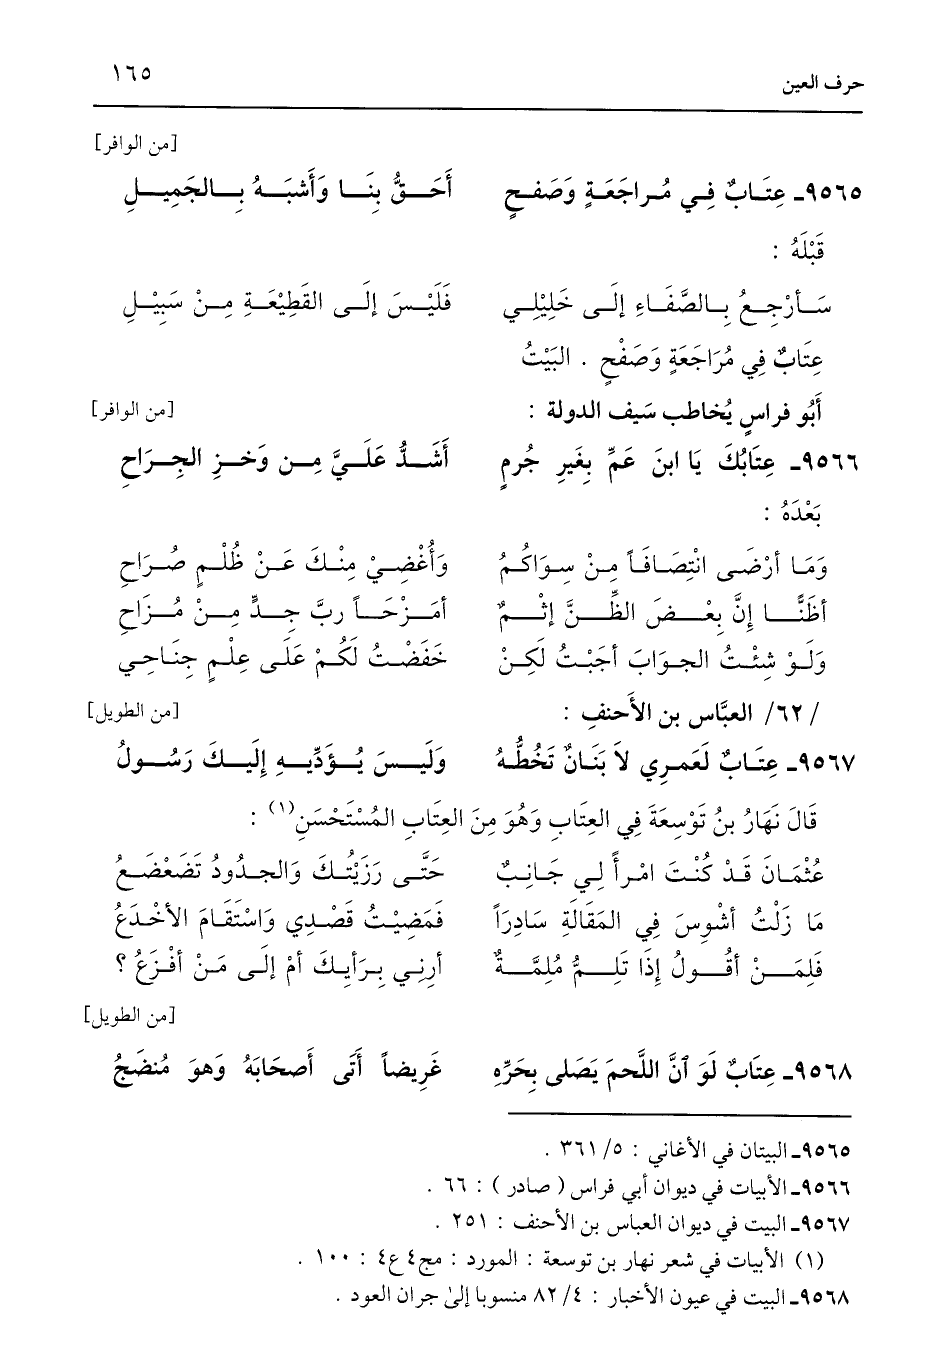 حرف العين ١٦٥
[من الوافر]
٩٥٦٥ـ عِتَابٌ فِي مُراجَعَةٍ وَصَفحٍ أَحَقُّ بِنَا وَأَشبَهُ بِالجَمِيلِ
قَبْلَهُ :
سَأَرْجِعُ بِالصَّفَاءِ إِلَى خَلِيْلِي فَلَيْسَ إِلَى القَطِيْعَةِ مِنْ سَبِيْلِ
عِتَابٌ فِي مُرَاجَعَةٍ وَصَفْحٍ . البَيْتُ
أَبُو فراسٍ يُخاطب سَيف الدولة : [من الوافر]
٩٥٦٦ـ عِتَابُكَ يَا ابنَ عَمِّ بِغَيرِ جُرمٍ أَشَدُّ عَلَيَّ مِن وَخزِ الجِرَاحِ
بَعْدَهُ :
وَمَا أَرْضَى انْتِصَافَاً مِنْ سِوَاكُمُ وَأُغْضِيْ مِنْكَ عَنْ ظُلْمٍ صُرَاحِ
أَظَنَّا إِنَّ بِعْضَ الظِّنَّ إِثْمٌ أَمَزْحَاً رِبَّ جِدٍّ مِنْ مُزَاحِ
وَلَوْ شِئْتُ الجوَابَ أَجَبْتُ لَكِنْ خَفَضْتُ لَكُمْ عَلَى عِلْمٍ جِنَاحِي
/ ٦٢/ العبَّاس بن الأَحنفِ : [من الطويل]
٩٥٦٧ـ عِتَابٌ لَعَمرِي لاَ بَنَانٌ تَخُطُّهُ وَلَيسَ يُؤَدِّيهِ إِلَيكَ رَسُولُ
قَالَ نَهَارُ بنُ تَوْسِعَةَ فِي العِتَابِ وَهُوَ مِنَ العِتَابِ المُسْتَحْسَنِ(١) :
عُثْمَانَ قَدْ كُنْتَ امْرأً لِي جَانِبٌ حَتَّى رَزِيْتُكَ وَالجدُودُ تَضَعْضَعُ
مَا زَلْتُ أَشْوِسَ فِي المَقَالَةِ سَادِرَاً فَمَضِيْتُ قَصْدِي وَاسْتَقَامَ الأَخْدَعُ
فَلِمَنْ أَقُولُ إِذَا تَلِمُّ مُلِمَّةٌ أَرِنِي بِرَأيِكَ أَمْ إِلَى مَنْ أَفْزَعُ ؟
[من الطويل]
٩٥٦٨ـ عِتَابٌ لَوَ آنَّ اللَّحمَ يَصَلى بِحَرِّهِ غَرِيضاً أَتَى أَصحَابَهُ وَهوَ مُنضَجُ
٩٥٦٥ـ البيتان في الأغاني : ٥/ ٣٦١ .
٩٥٦٦ـ الأبيات في ديوان أبي فراس ( صادر ) : ٦٦ .
٩٥٦٧ـ البيت في ديوان العباس بن الأحنف : ٢٥١ .
(١) الأبيات في شعر نهار بن توسعة : المورد : مج٤ ع٤ : ١٠٠ .
٩٥٦٨ـ البيت في عيون الأخبار : ٤/ ٨٢ منسوبا إلىٰ جران العود .